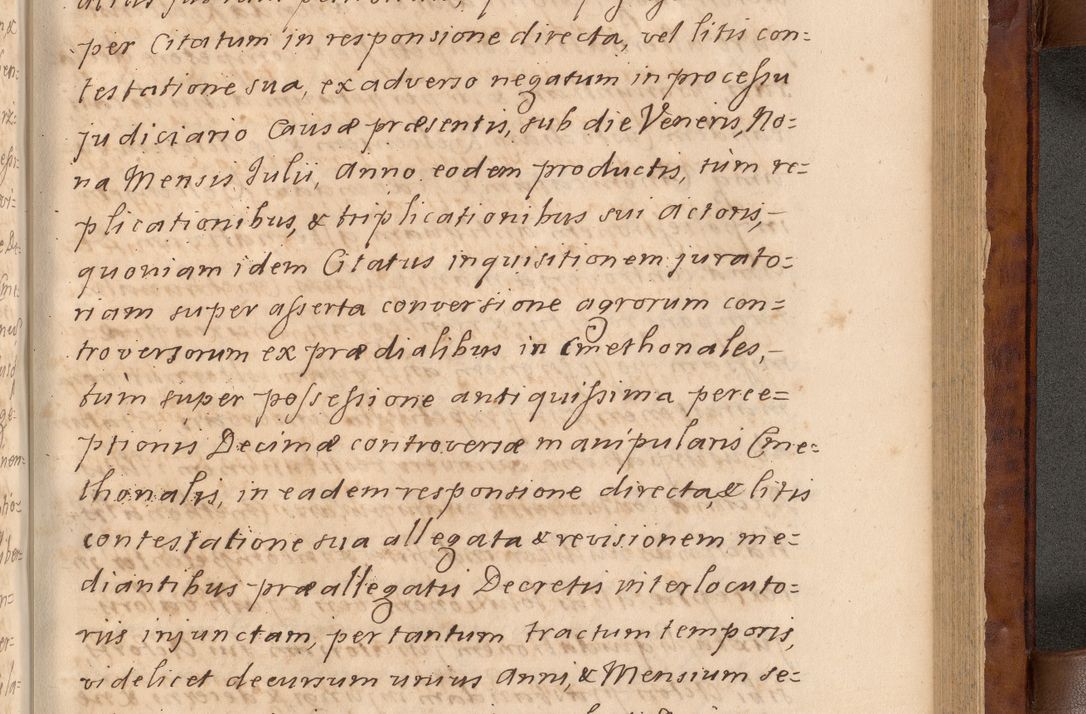 per Citatum in responsione directa, vel litis con=
testatione sua, ex adverso negatum in processu
judiciario Causæ præsentis, sub die Veneris, No=
na Mensis Julii, Anno eodem productis, tùm re=
plicationibus, & triplicationibus sui Actoris,-
quoniam idem Citatus inquisitionem jurato=
riam super asserta conversione agrorum con=
troversorum ex prædialibus in Cmethonales,-
tùm super possessione antiquissima perce=
ptionis Decimæ controversæ manipularis Cme=
thonalis, in eadem responsione directa, & litis
contestatione sua allegata & revisionem me=
diantibus præallegatis Decretis interlocuto=
riis injunctam, per tantum tractum temporis,
videlicet decursum unius Anni, & Mensium se=